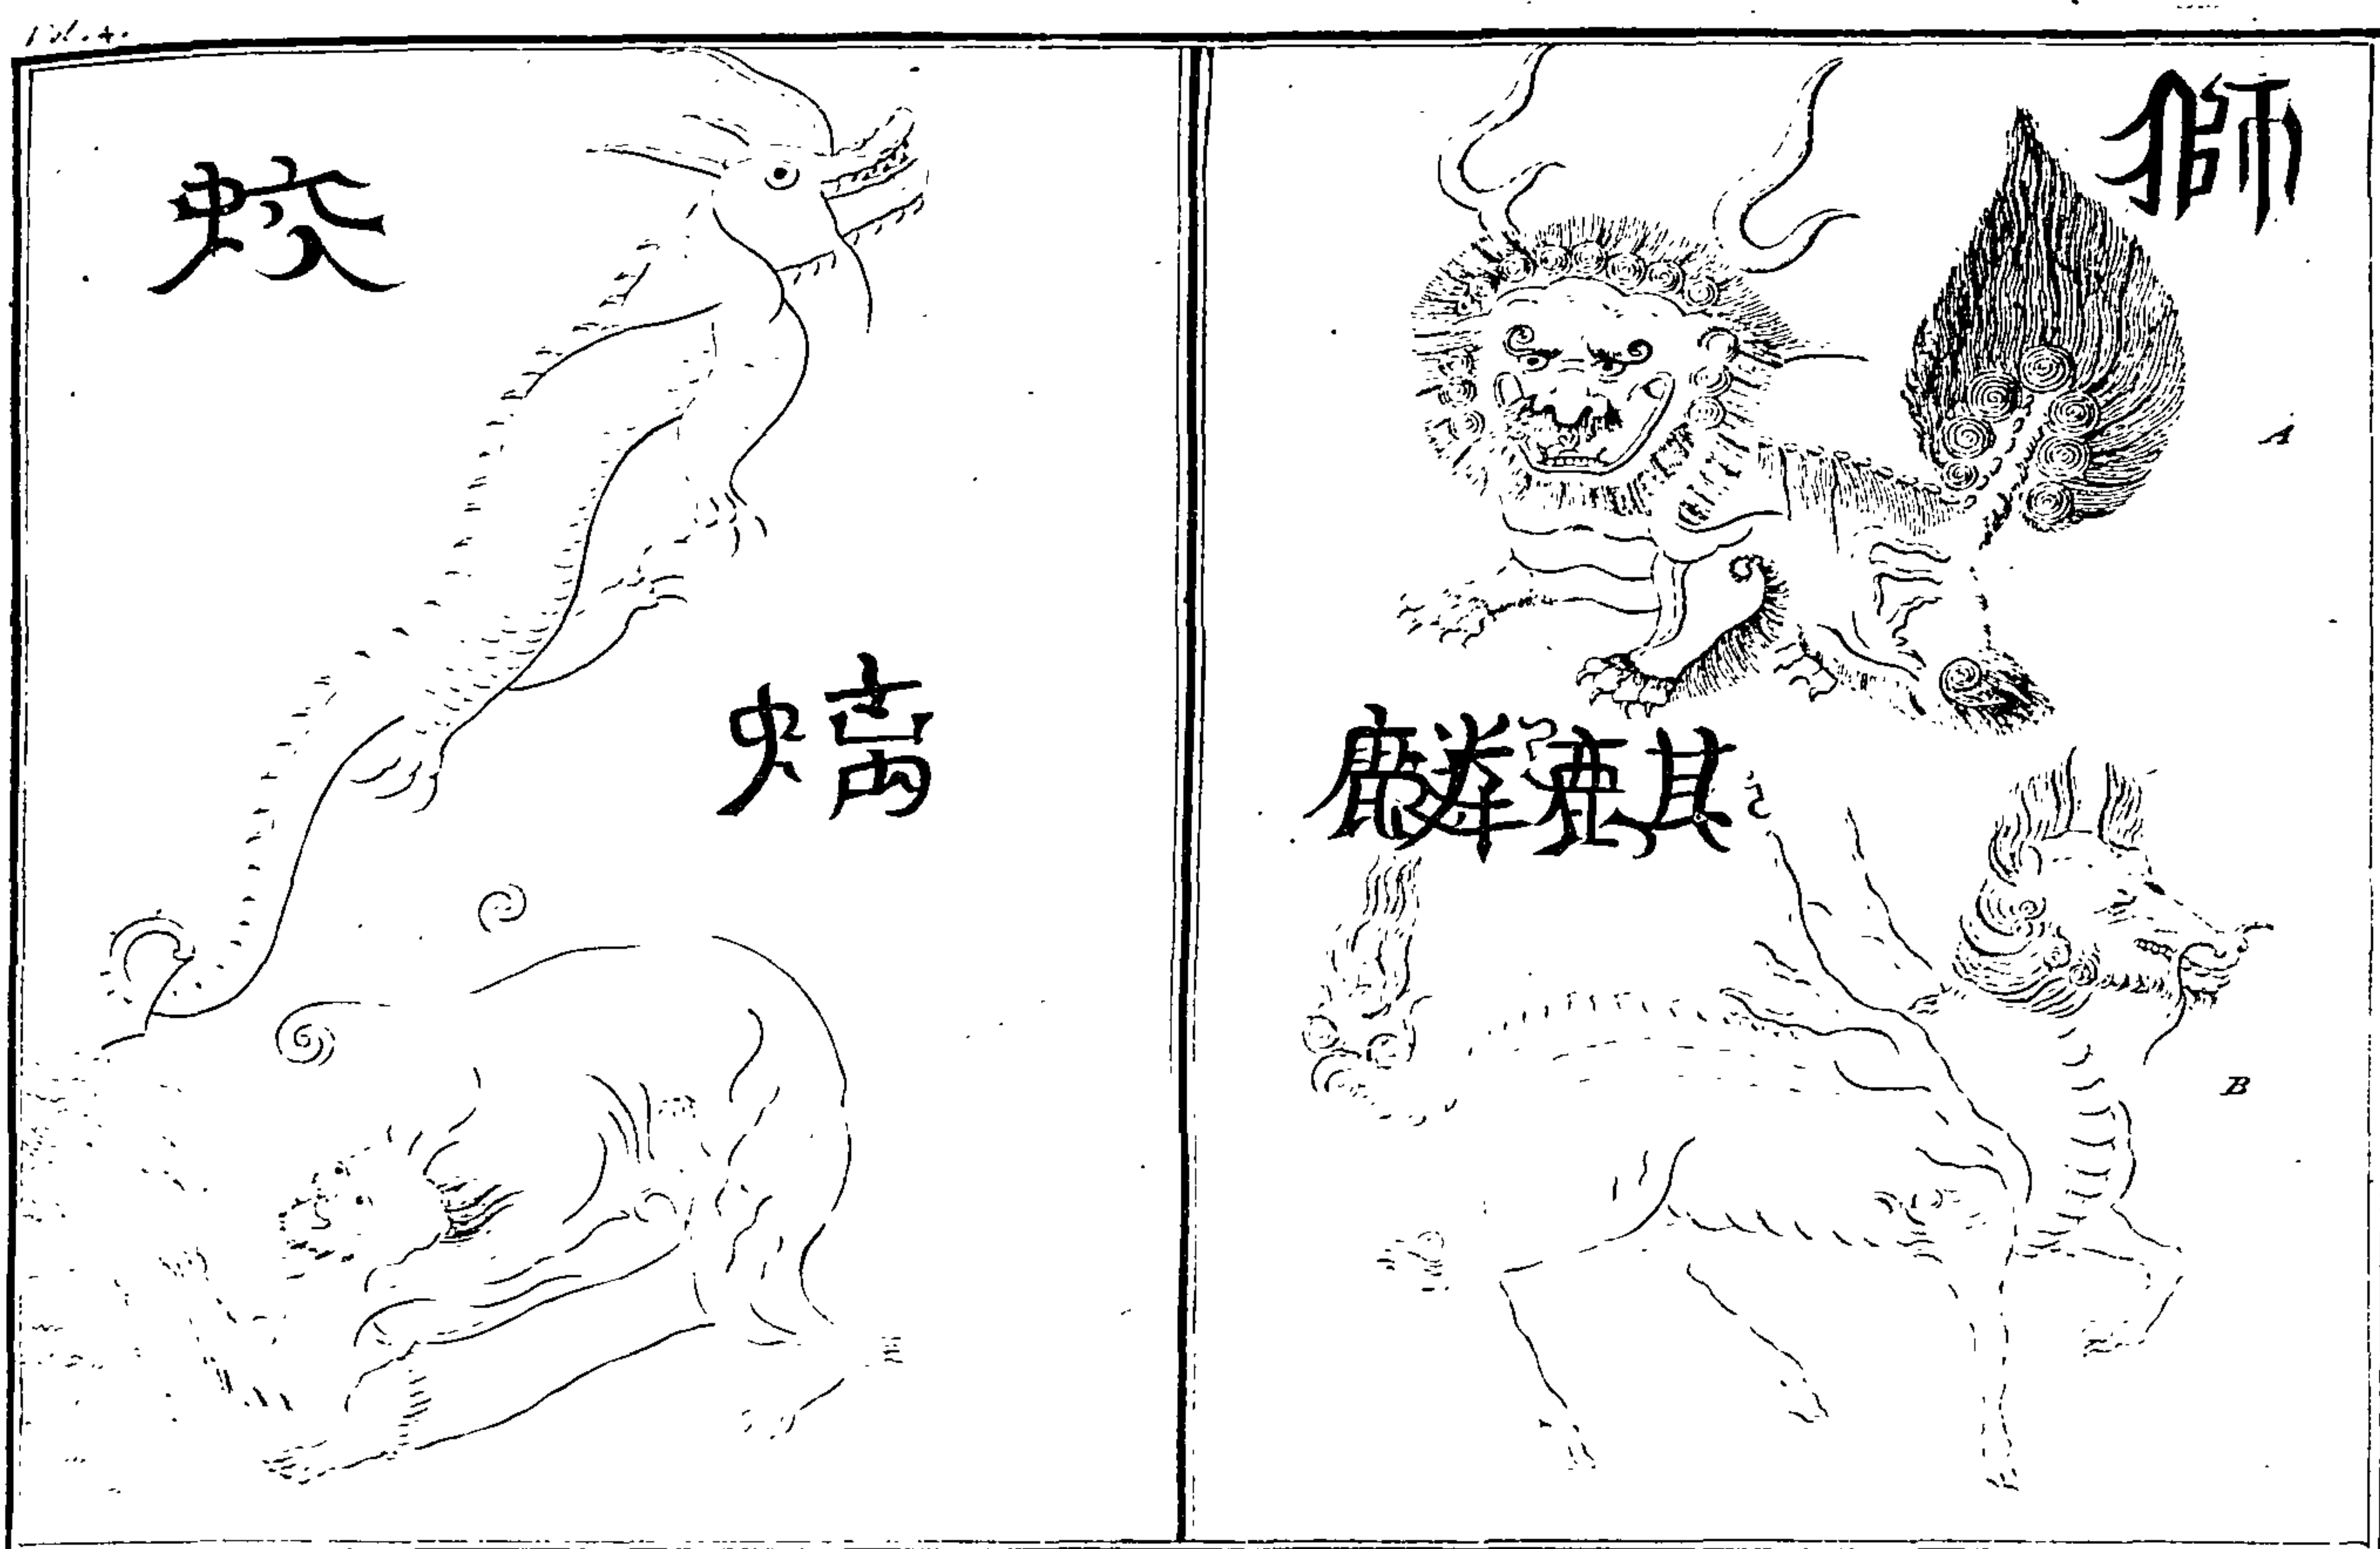 Pl. 4.
蛟
螭
獅
A
麒麟
B